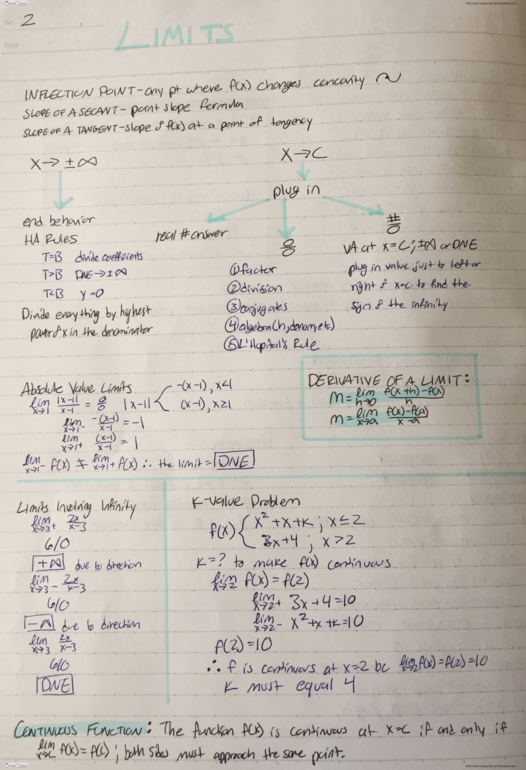 2
LIMITS
INFLECTION POINT - any pt where f(x) changes concavity
SLOPE OF A SECANT - point slope formula
SLOPE OF A TANGENT - slope of f(x) at a point of tangency
X → ±∞
X → C
plug in
end behavior
HA Rules
T=B divide coefficients
T>B DNE → ±∞
T<B y=0
Divide everything by highest
power of x in the denominator
real # answer
0/0
① factor
② division
③ conjugates
④ algebra (h, denom, etc)
⑤ L'Hopital's Rule
#/0
VA at x=C; ±∞ or DNE
plug in value just to left or
right of x=c to find the
sign of the infinity
Absolute Value Limits
lim x→1 |x-1|/x-1 = 0/0 |x-1| { -(x-1), x<1
(x-1), x≥1
lim x→1- -(x-1)/x-1 = -1
lim x→1+ (x-1)/x-1 = 1
lim x→1- f(x) ≠ lim x→1+ f(x) ∴ the limit = DNE
DERIVATIVE OF A LIMIT:
m = lim h→0 f(x+h)-f(x)/h
m = lim x→a f(x)-f(a)/x-a
Limits Involving Infinity
lim x→3+ 2x/x-3
6/0
+∞ due to direction
lim x→3- 2x/x-3
6/0
-∞ due to direction
lim x→3 2x/x-3
6/0
DNE
K-value Problem
f(x) { x² + x + k ; x ≤ 2
3x+4 ; x > 2
K=? to make f(x) continuous
lim x→2 f(x) = f(2)
lim x→2+ 3x+4=10
lim x→2- x²+x+k=10
f(2)=10
∴ f is continuous at x=2 bc lim x→2 f(x)=f(2)=10
K must equal 4
CONTINUOUS FUNCTION: The function f(x) is continuous at x=c if and only if
lim x→c f(x)=f(c); both sides must approach the same point.